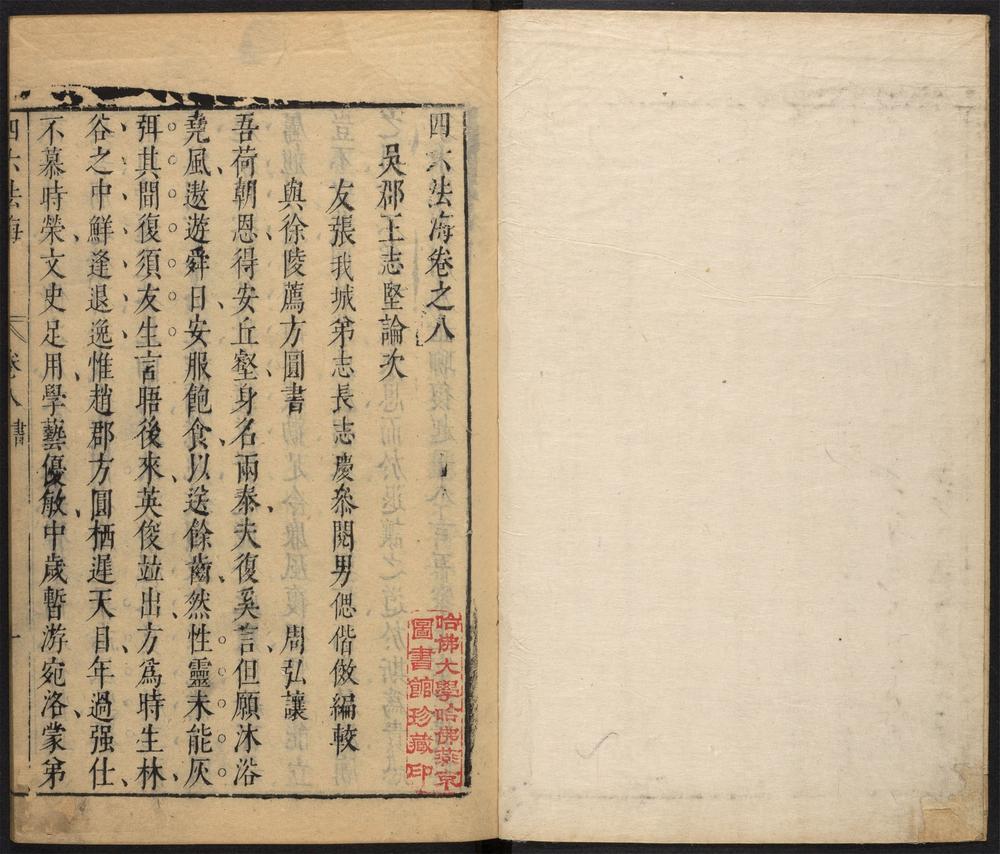 四六法海卷之八
吳郡王志堅論次
友張我城弟志長志慶叅閱男偲偕倣編較
與徐陵薦方圓書 周弘讓
吾荷朝恩得安丘壑身名兩泰夫復奚言但願沐浴
堯風遨遊舜日安服飽食以送餘齒然性靈未能灰
弭其間復須友生言晤後來英俊竝出方爲時生林
谷之中鮮逢退逸惟趙郡方圓栖遲天目年過强仕
不慕時榮文史足用學藝優敏中歲暫游宛洛蒙弟
四六法海 卷八 書 一
哈佛大學哈佛燕京
圖書館珍藏印